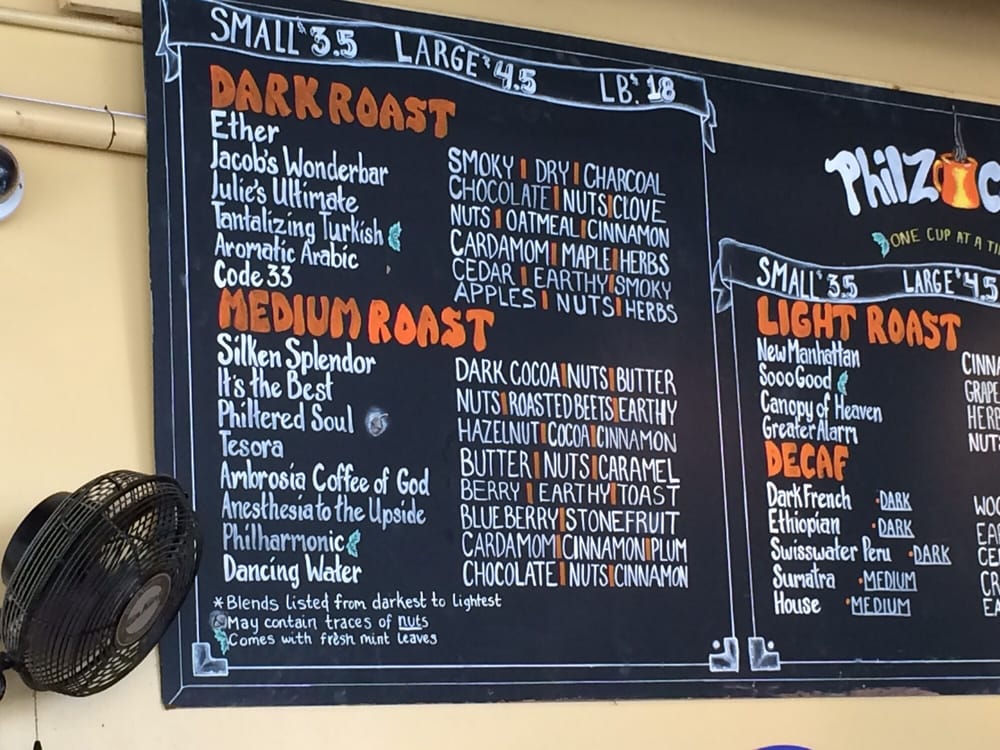 SMALL $3.5 LARGE $4.5 LB. $18
DARK ROAST
Ether SMOKY | DRY | CHARCOAL
Jacob's Wonderbar CHOCOLATE | NUTS | CLOVE
Julie's Ultimate NUTS | OATMEAL | CINNAMON
Tantalizing Turkish CARDAMOM | MAPLE | HERBS
Aromatic Arabic CEDAR | EARTHY | SMOKY
Code 33 APPLES | NUTS | HERBS
MEDIUM ROAST
Silken Splendor DARK COCOA | NUTS | BUTTER
It's the Best NUTS | ROASTED BEETS | EARTHY
Philtered Soul HAZELNUT | COCOA | CINNAMON
Tesora BUTTER | NUTS | CARAMEL
Ambrosia Coffee of God BERRY | EARTHY | TOAST
Anesthesia to the Upside BLUEBERRY | STONEFRUIT
Philharmonic CARDAMOM | CINNAMON | PLUM
Dancing Water CHOCOLATE | NUTS | CINNAMON
*Blends listed from darkest to lightest
May contain traces of nuts
Comes with fresh mint leaves
Philz C
ONE CUP AT A
SMALL $3.5 LARGE $4.5
LIGHT ROAST
New Manhattan CINN
Sooo Good GRAPE
Canopy of Heaven HER
Greater Alarm NUT
DECAF
Dark French •DARK WO
Ethiopian •DARK EA
Swisswater Peru •DARK CE
Sumatra •MEDIUM CR
House •MEDIUM EA